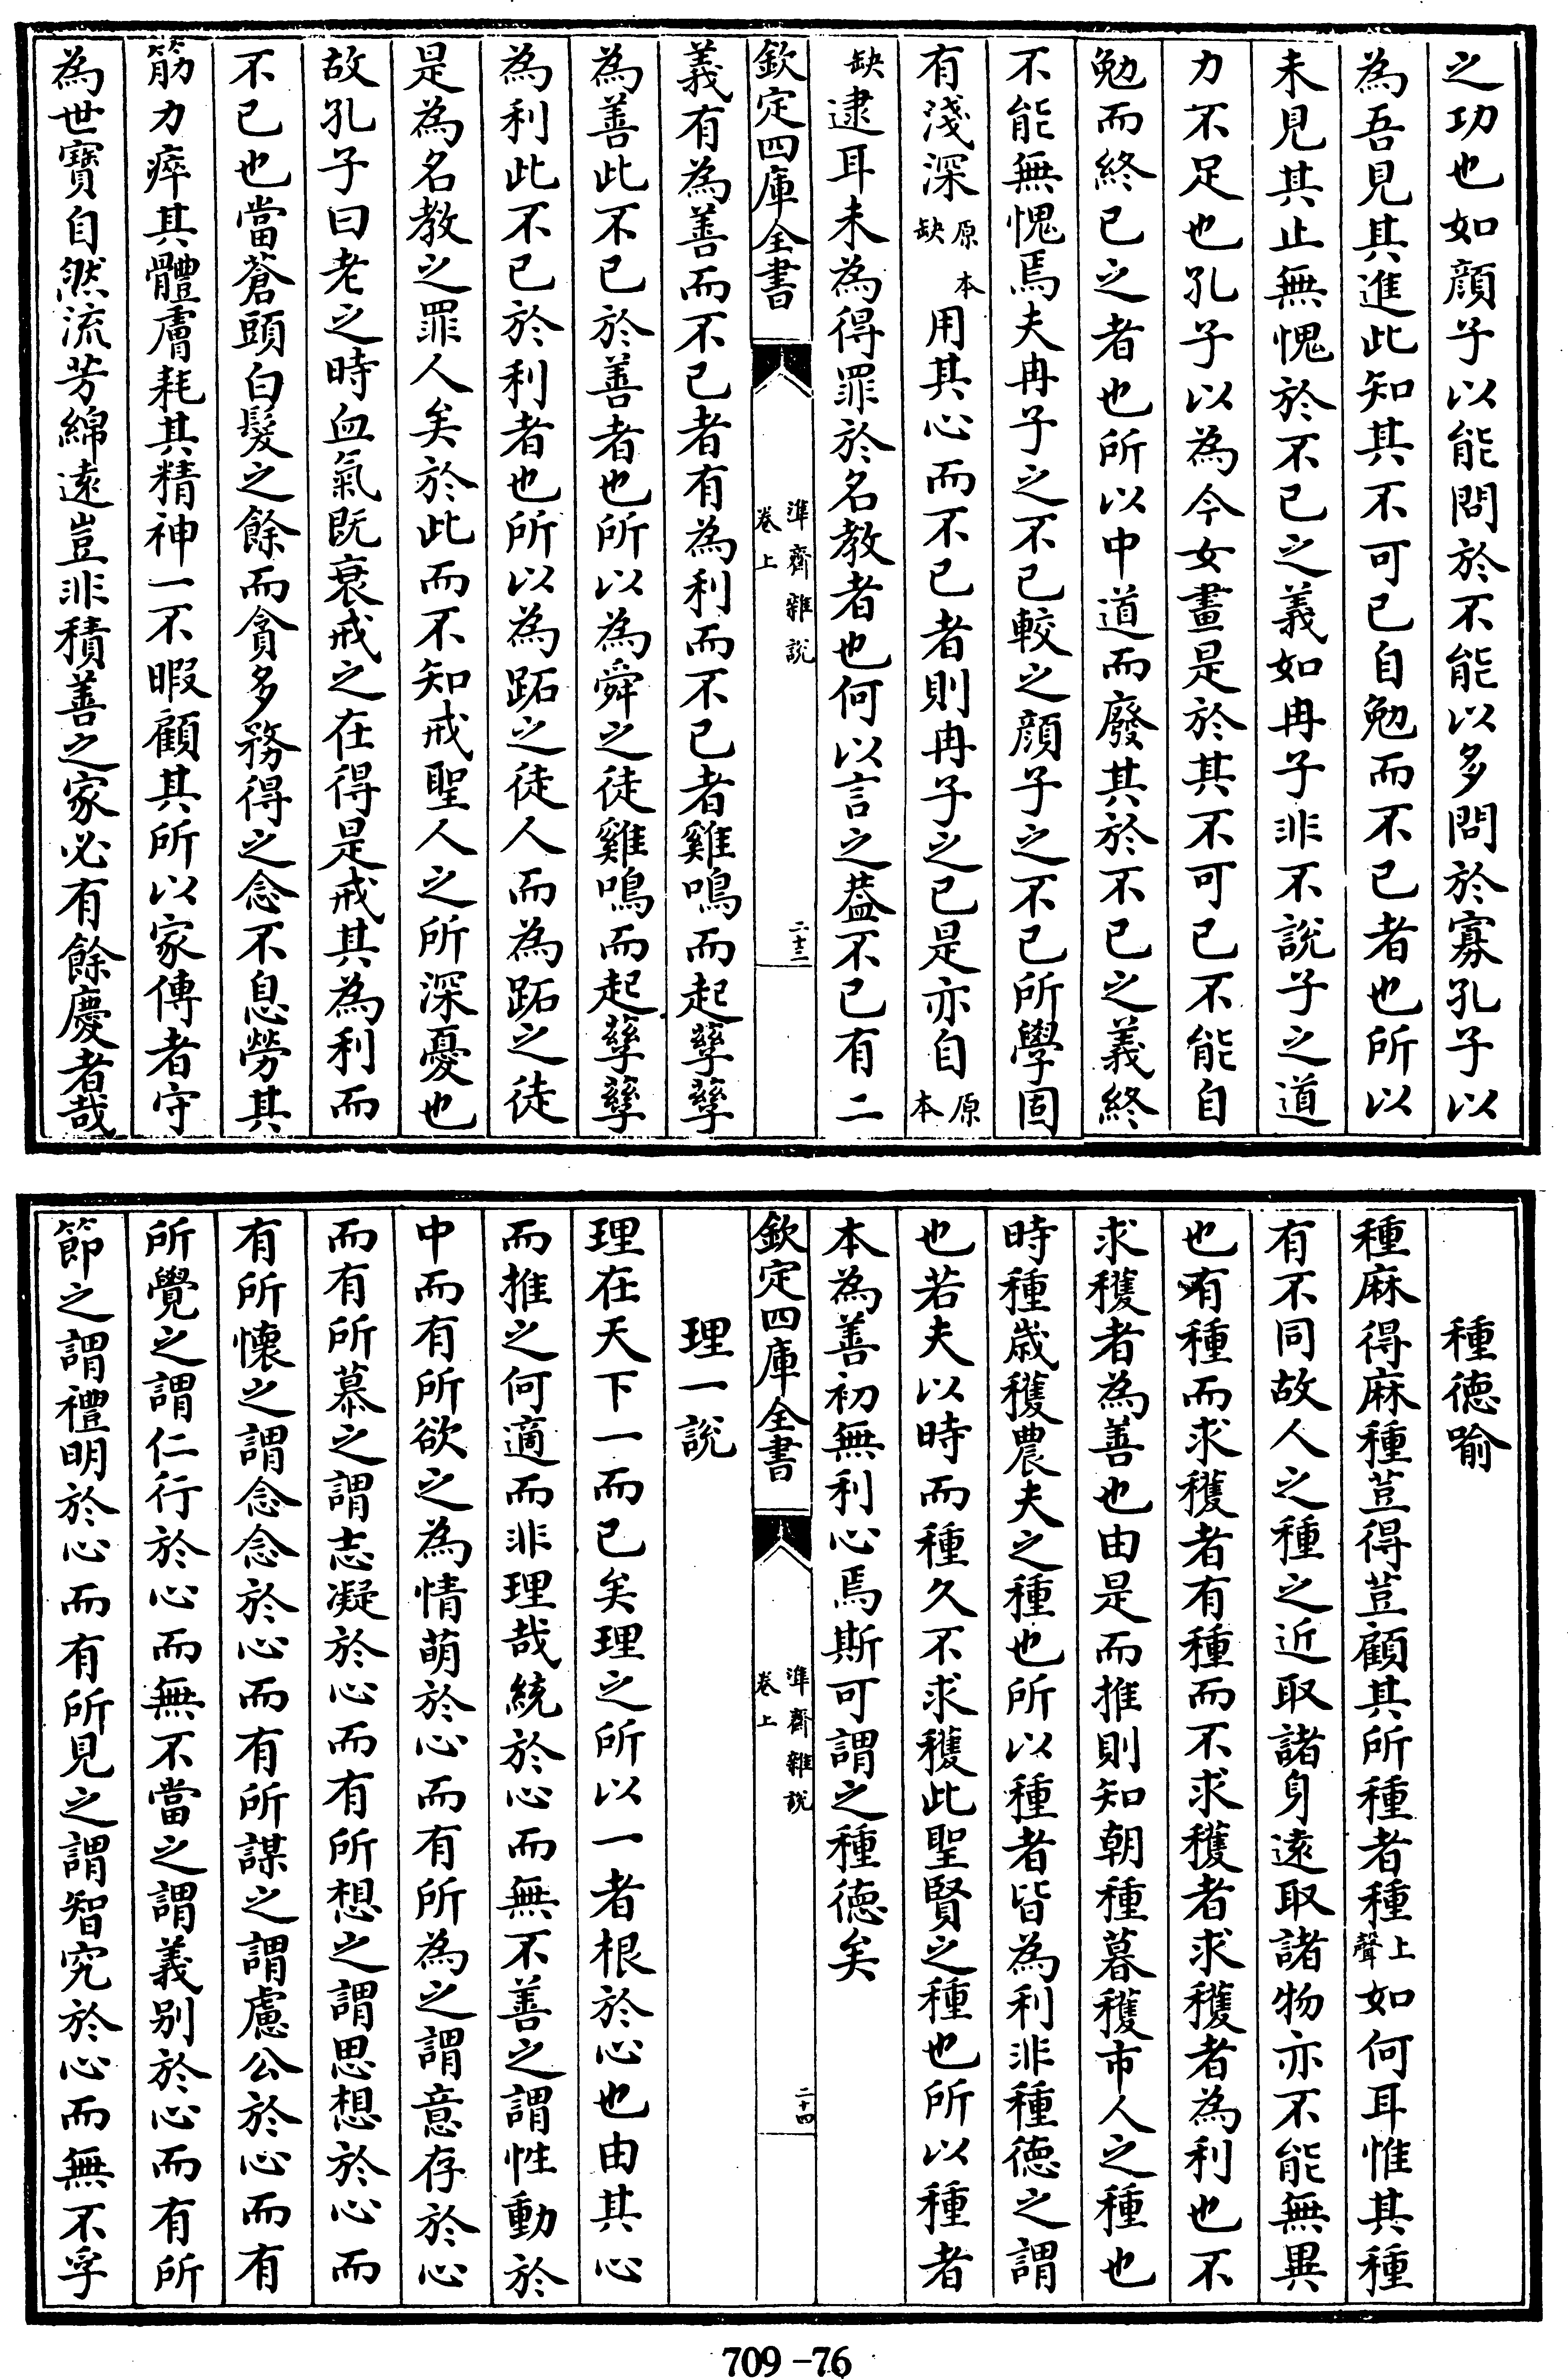 之功也如顔子以能問於不能以多問於寡孔子以
為吾見其進此知其不可已自勉而不已者也所以
未見其止無愧於不已之義如冉子非不說子之道
力不足也孔子以為今女畫是於其不可已不能自
勉而終已之者也所以中道而廢其於不已之義終
不能無愧焉夫冉子之不已較之顔子之不已所學固
有淺深原本缺用其心而不已者則冉子之已是亦自原本
缺逮耳未為得罪於名教者也何以言之葢不已有二
欽定四庫全書
準齋雜說
卷上
二十三
義有為善而不已者有為利而不已者雞鳴而起孳孳
為善此不已於善者也所以為舜之徒雞鳴而起孳孳
為利此不已於利者也所以為跖之徒人而為跖之徒
是為名教之罪人矣於此而不知戒聖人之所深憂也
故孔子曰老之時血氣既衰戒之在得是戒其為利而
不已也當蒼頭白髮之餘而貪多務得之念不息勞其
筋力瘁其體膚耗其精神一不暇顧其所以家傳者守
為世寶自然流芳綿遠豈非積善之家必有餘慶者哉
種德喻
種麻得麻種荳得荳顧其所種者種上聲如何耳惟其種
有不同故人之種之近取諸身遠取諸物亦不能無異
也有種而求穫者有種而不求穫者求穫者為利也不
求穫者為善也由是而推則知朝種暮穫市人之種也
時種歲穫農夫之種也所以種者皆為利非種德之謂
也若夫以時而種久不求穫此聖賢之種也所以種者
本為善初無利心焉斯可謂之種德矣
欽定四庫全書
準齋雜說
卷上
二十四
理一說
理在天下一而已矣理之所以一者根於心也由其心
而推之何適而非理哉統於心而無不善之謂性動於
中而有所欲之為情萌於心而有所為之謂意存於心
而有所慕之謂志凝於心而有所想之謂思想於心而
有所懷之謂念念於心而有所謀之謂慮公於心而有
所覺之謂仁行於心而無不當之謂義别於心而有所
節之謂禮明於心而有所見之謂智究於心而無不孚
709-76